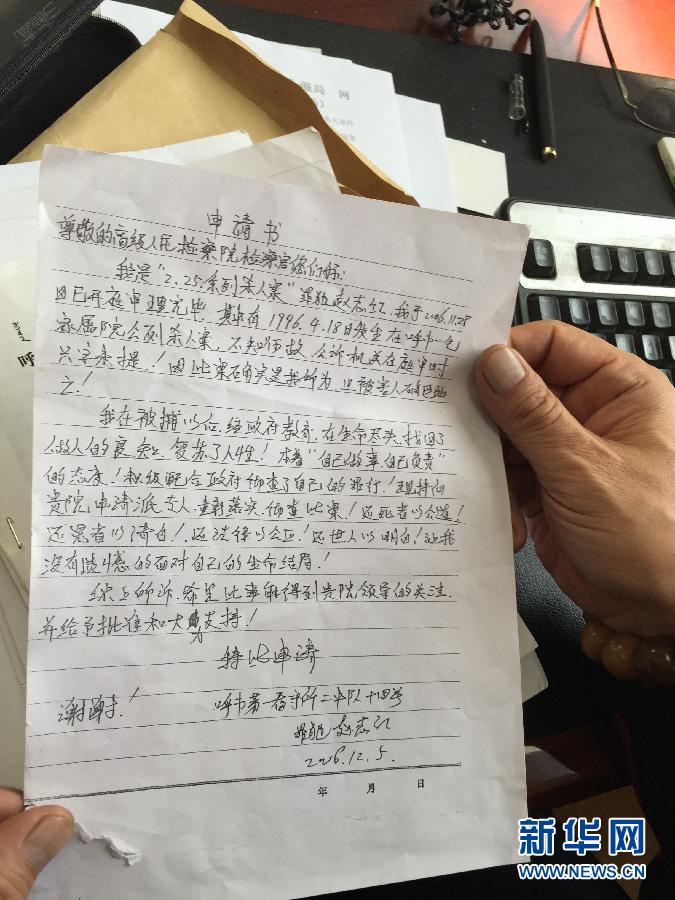 申请书
尊敬的高级人民检察院检察官您们好:
我是"2.25系列杀人案"罪犯赵志红,我于2006.11.28
日已开庭审理完毕,其中有1996.4.18日发生在呼市一毛
家属院公厕杀人案,不知何故,公诉机关在庭审时
只字未提!因此案确实是我所为,且被害人确已
亡!
我在被捕以后,经政府教育,在生命尽头找回了
做人的良知,复苏了人性!本着"自己做事,自己负责"
的态度!积极配合政府彻查了自己的罪行!现特向
贵院申请派专人重新落实,彻查此案!还死者以公道!
还冤者以清白!还法律以公正!还世人以明白!让我
没有遗憾的面对自己的生命结局!
综上所诉,希望此事能得到贵院领导的关注,
并给予批准和大力支持!
特此申请
谢谢! 呼市第一看守所二中队十四号
罪犯赵志红
2006.12.5.
年 月 日
局 网
呼
新华网
WWW.NEWS.CN